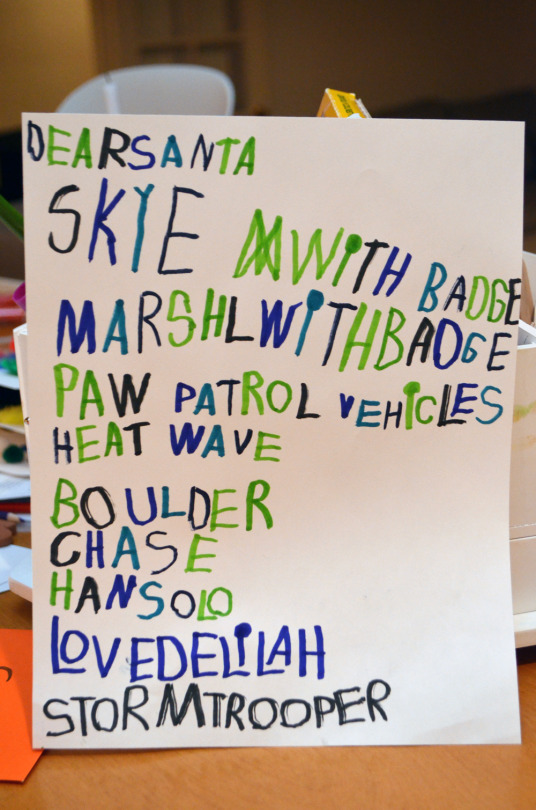 DEARSANTA
SKYE WITH BADGE
MARSHLWITHBADGE
PAW PATROL VEHICLES
HEAT WAVE
BOULDER
CHASE
HANSOLO
LOVEDELILAH
STORMTROOPER